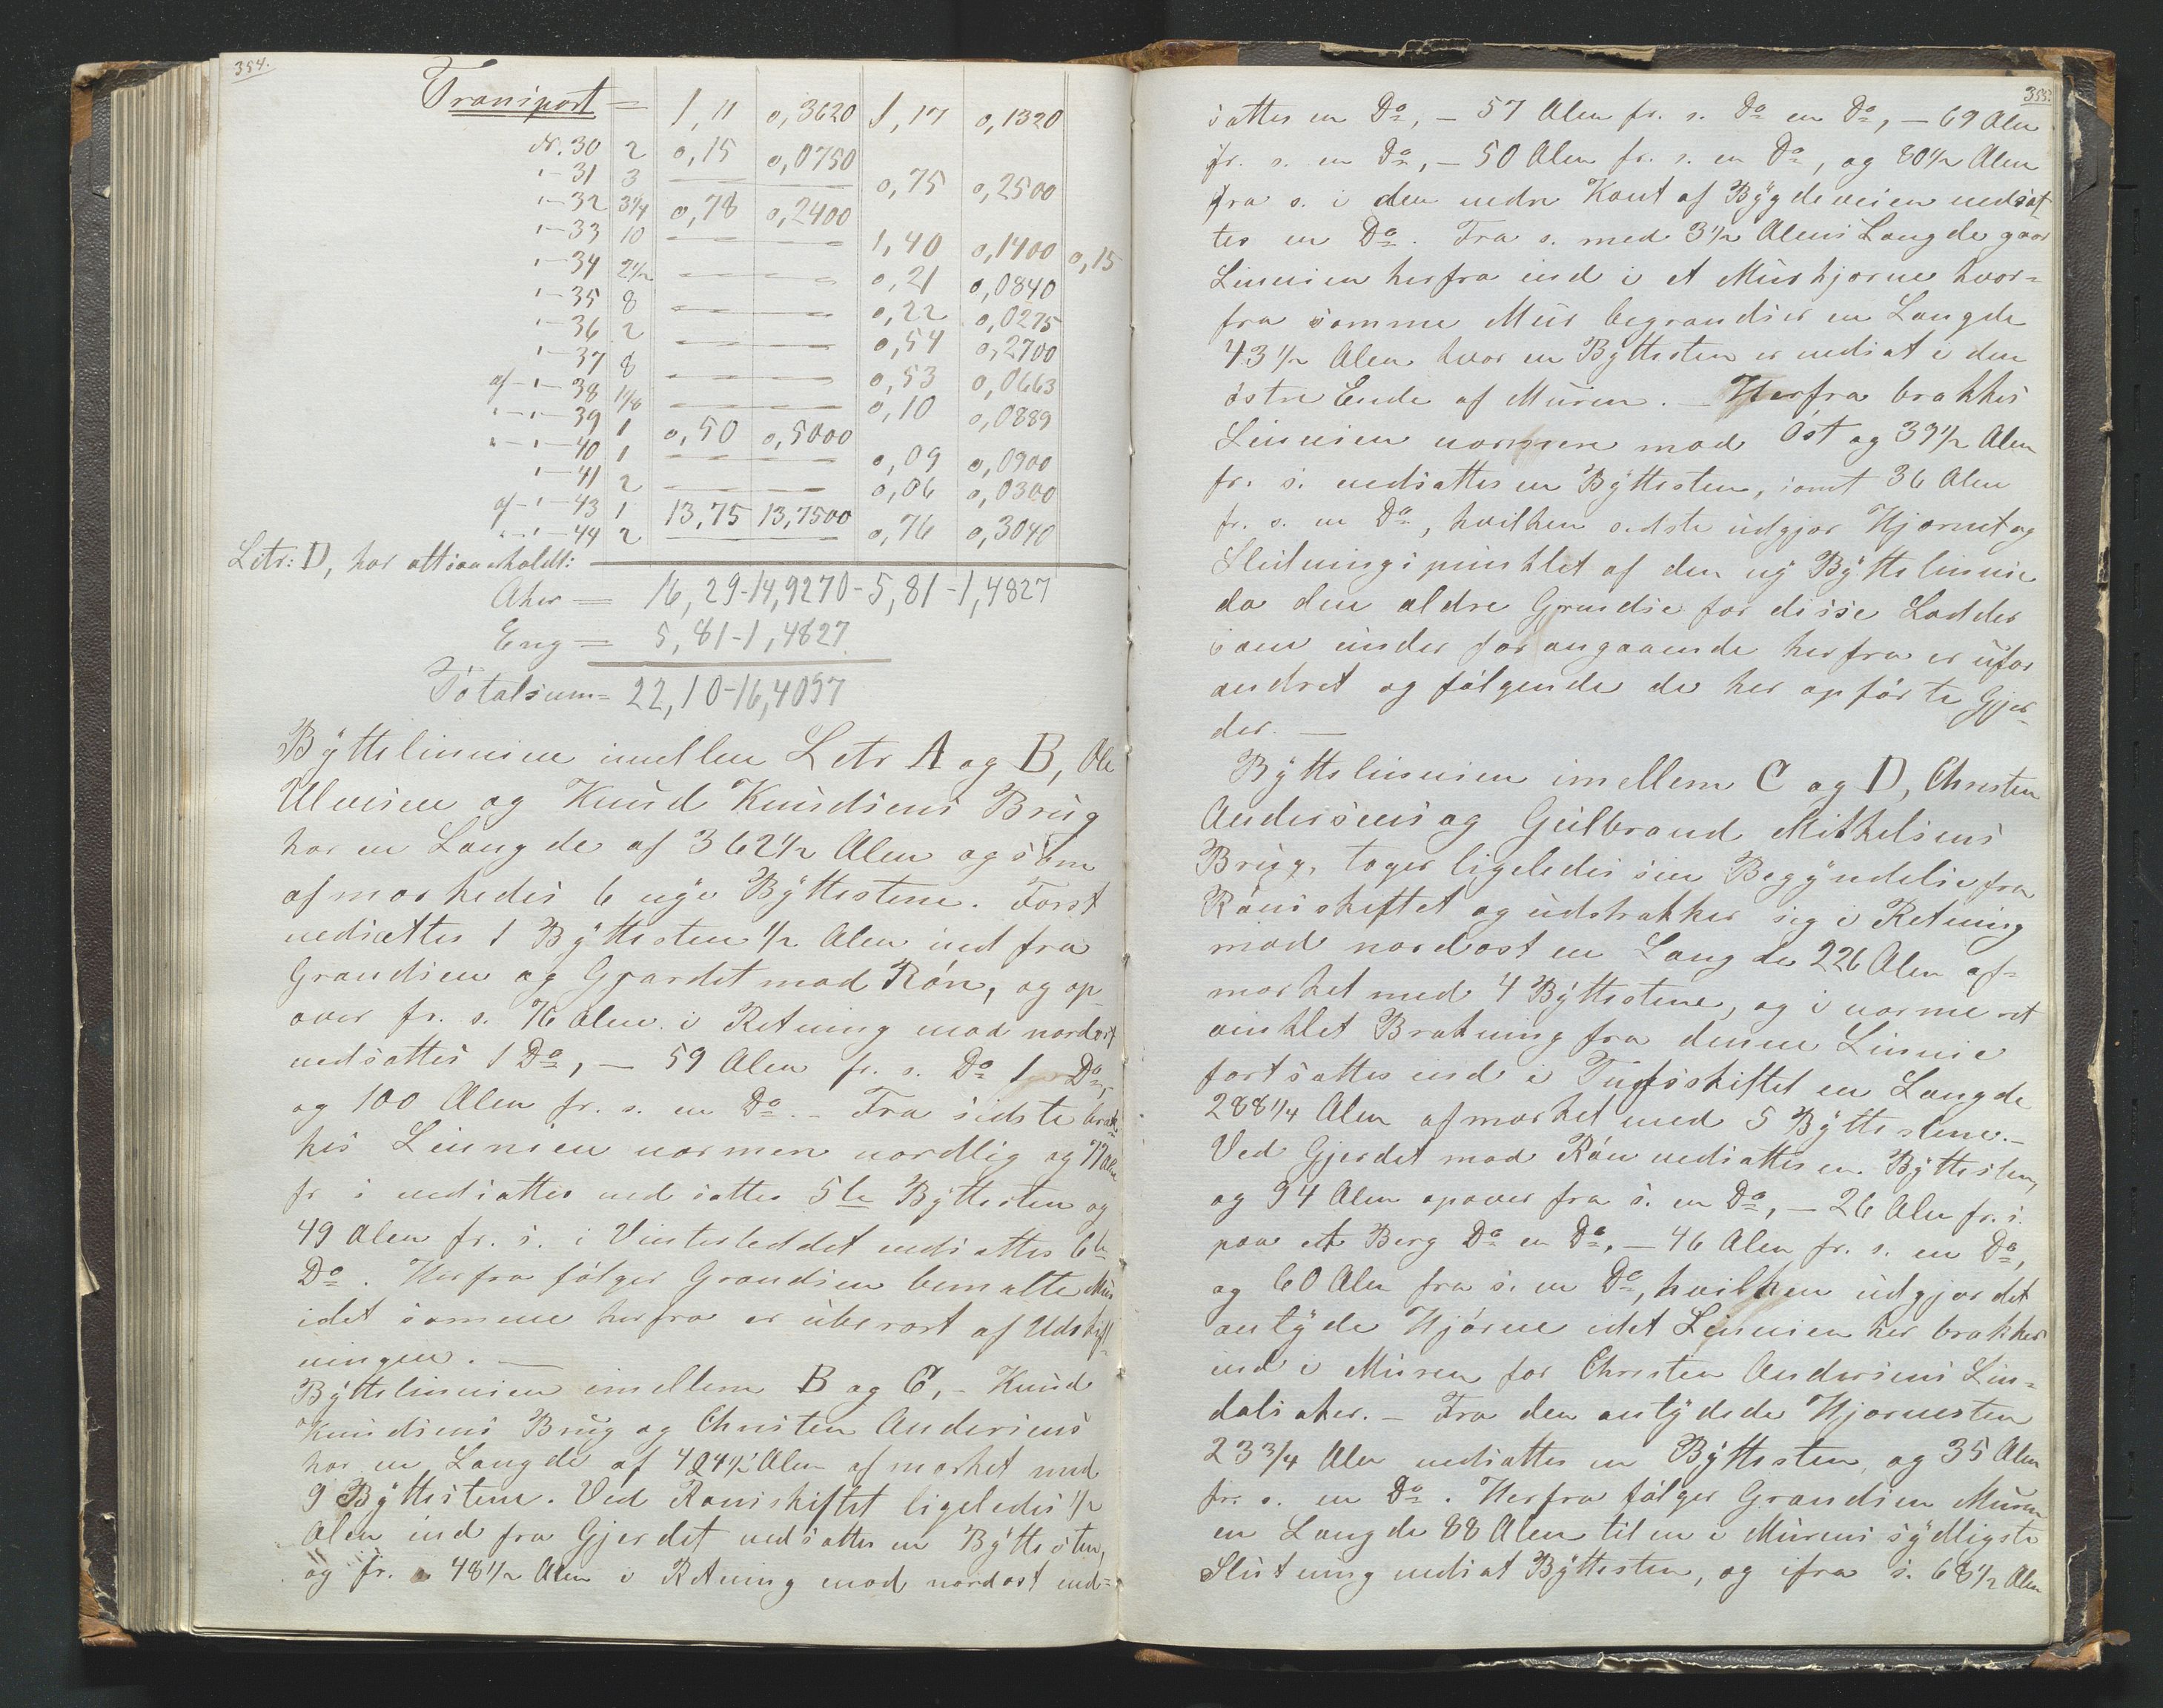 354.
Transport = 1,11 0,3620 1,17 0,1320
Nr. 30 2 0,15 0,0750
"—31 3 — — 0,75 0,2500
"—32 3 1/4 0,78 0,2400
"—33 10 — — 1,40 0,1400 0,15
"—34 2 1/2 — — 0,21 0,0840
"—35 8 — — 0,22 0,0275
"—36 2 — — 0,54 0,2700
"—37 8 — — 0,53 0,0663
af "—38 1 1/8 — — 0,10 0,0889
"—"—39 1 0,50 0,5000
"—"—40 1 — — 0,09 0,0900
"—41 2 — — 0,06 0,0300
af "—43 1 13,75 13,7500
"—"—44 2 — — 0,76 0,3040
Letr: D, har altsaa erholdt:
Aker = 16,29-14,9270-5,81-1,4827
Eng = 5,81-1,4827
Totalsum = 22,10-16,4097
Byttelinnien imellem Letr A og B, Ole
Ulvesen og Knud Knudsens Brug
har en Længde af 362 1/2 Alen og som
afmærkedes 6 nye Byttestene. Først
nedsættes 1 Byttesten 1/2 Alen ind fra
Grændsen og Gjærdet mod Røn, og op-
over fr. s. 76 Alen i Retning mod nordost
nedsættes 1 Do, — 59 Alen fr. s. Do 1 Do,
og 100 Alen fr. s. en Do. — Fra sidste bræk-
kes Linnien nærmere nordlig og 77 Alen
fr s nedsættes nedsættes 5te Byttesten og
49 Alen fr. s. i Vinterleddet nedsættes 6te
Do. Herfra følger Grændsen bemælte Mur
idet samme herfra er uberørt af Udskift-
ningen. —
Byttelinnien imellem B og C, - Knud
Knudsens Brug og Christen Andersens
har en Længde af 424 1/2 Alen afmærket med
9 Byttestene. Ved Rønsskiftet ligeledes 1/2
Alen ind fra Gjerdet nedsættes en Byttesten,
og fr. s 48 1/2 Alen i Retning mod nordost ned-
355.
sættes en Do, — 57 Alen fr. s. Do en Do, — 69 Alen
fr. s. en Do, — 50 Alen fr. s. en Do, og 80 1/2 Alen
fra s. i den nedre Kant af Bygdeveien nedsæt-
tes en Do. Fra s. med 3 1/2 Alens Længde gaar
Linnien herfra ind i et Murhjørne hvor-
fra samme Mur begrændser en Længde
43 1/2 Alen hvor en Byttesten er nedsat i den
østre Ende af Muren. — Herfra brækkes
Linnien nærmere mod Øst og 39 1/2 Alen
fr. s. nedsættes en Byttesten, samt 36 Alen
fr. s. en Do, hvilken sidste udgjør Hjørnet og
Slutningspunktet af den ny Byttelinnie
da den ældre Grændse for disse Lodder
som under forangaaende herfra er ufor-
andret og følgende de her opførte Gjer-
der. —
Byttelinnien imellem C og D, Christen
Andersens og Gulbrand Mikkelsens
Brug, tager ligeledes sin Begyndelse fra
Rønsskiftet og udstrækker sig i Retning
mod nordost en Længde 226 Alen af-
mærket med 4 Byttestene, og i nærme ret
vinklet Brækning fra denne Linnie
fortsættes ind i Tuftskiftet en Længde
288 1/4 Alen afmærket med 5 Byttestene. —
Ved Gjerdet mod Røn nedsættes en Byttesten,
og 94 Alen opover fra s. en Do, — 26 Alen fr. s.
paa et Berg Do en Do, — 46 Alen fr. s. en Do,
og 60 Alen fra s. en Do, hvilken udgjør det
antyde Hjørne idet Linnien her brækker
ind i Muren for Christen Andersens Lin-
dalsaker. — Fra den antydede Hjørnesten
23 3/4 Alen nedsættes en Byttesten, og 35 Alen
fr. s. en Do. Herfra følger Grændsen Muren
en Længde 88 Alen til en i Murens sydligste
Slutning nedsat Byttesten, og ifra s. 68 1/2 Alen